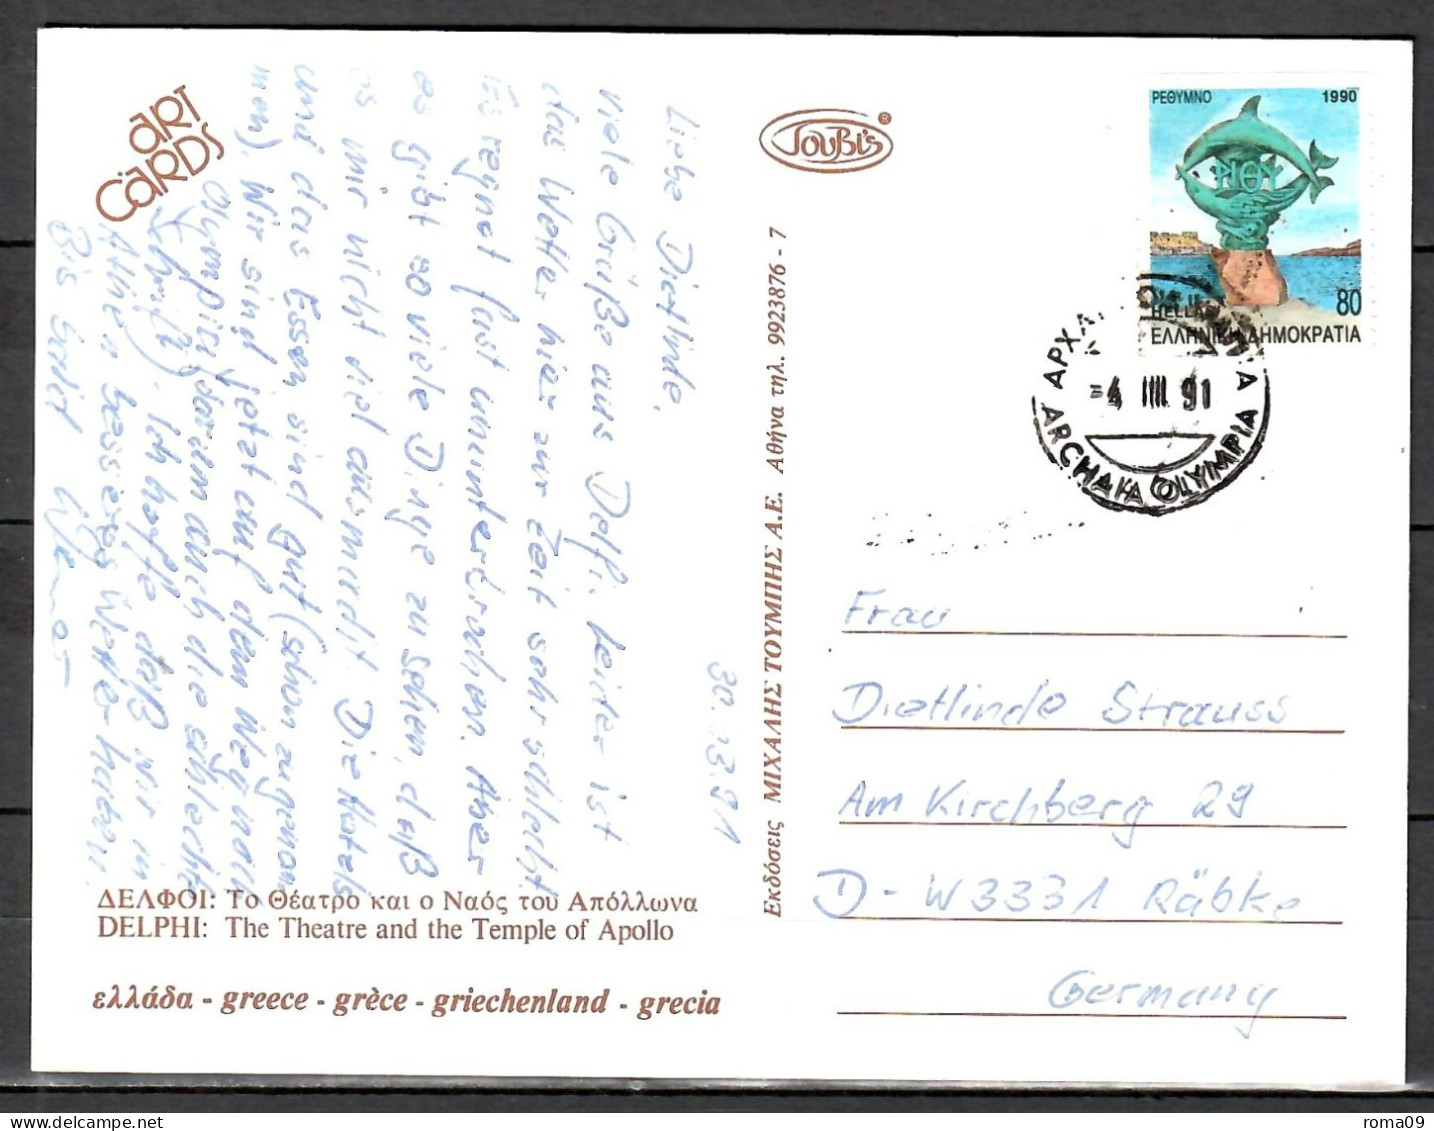 ART
CARDS
Liebe Dietlinde,
viele Grüße aus Delfi. Leider ist
das Wetter hier zur Zeit sehr schlecht.
Es regnet fast ununterbrochen. Aber
es gibt so viele Dinge zu sehen, daß
es mir nicht viel ausmacht. Die Hotels
und das Essen sind gut (schon zugenom
men). Wir sind jetzt auf dem Weg nach
Olympia (darum auch die schlechte
Schrift). Ich hoffe daß wir in
Athen besseres Wetter haben.
Bis bald
30.03.91
ΔΕΛΦΟΙ: Το Θέατρο και ο Ναός του Απόλλωνα
DELPHI: The Theatre and the Temple of Apollo
ελλάδα - greece - grèce - griechenland - grecia
Εκδόσεις ΜΙΧΑΛΗΣ ΤΟΥΜΠΗΣ Α.Ε. Αθήνα τηλ. 9923876 - 7
SouBi's ®
ΡΕΘΥΜΝΟ 1990
ΡΙΘΥ
HELLAS 80
ΕΛΛΗΝΙΚΗ ΔΗΜΟΚΡΑΤΙΑ
-4 III 91
ARCHAIA OLYMPIA
Frau
Dietlinde Strauss
Am Kirchberg 29
D-W3331 Räbke
Germany
roma09